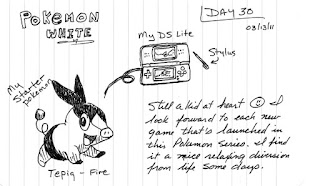 POKEMON
WHITE
DAY 30
03/13/11
My DS Lite
Stylus
My
Starter
Pokemon
Still a kid at heart ☺ I
look forward to each new
game that's launched in
this Pokemon Series. I find
it a nice relaxing diversion
from life some days.
Tepig - Fire